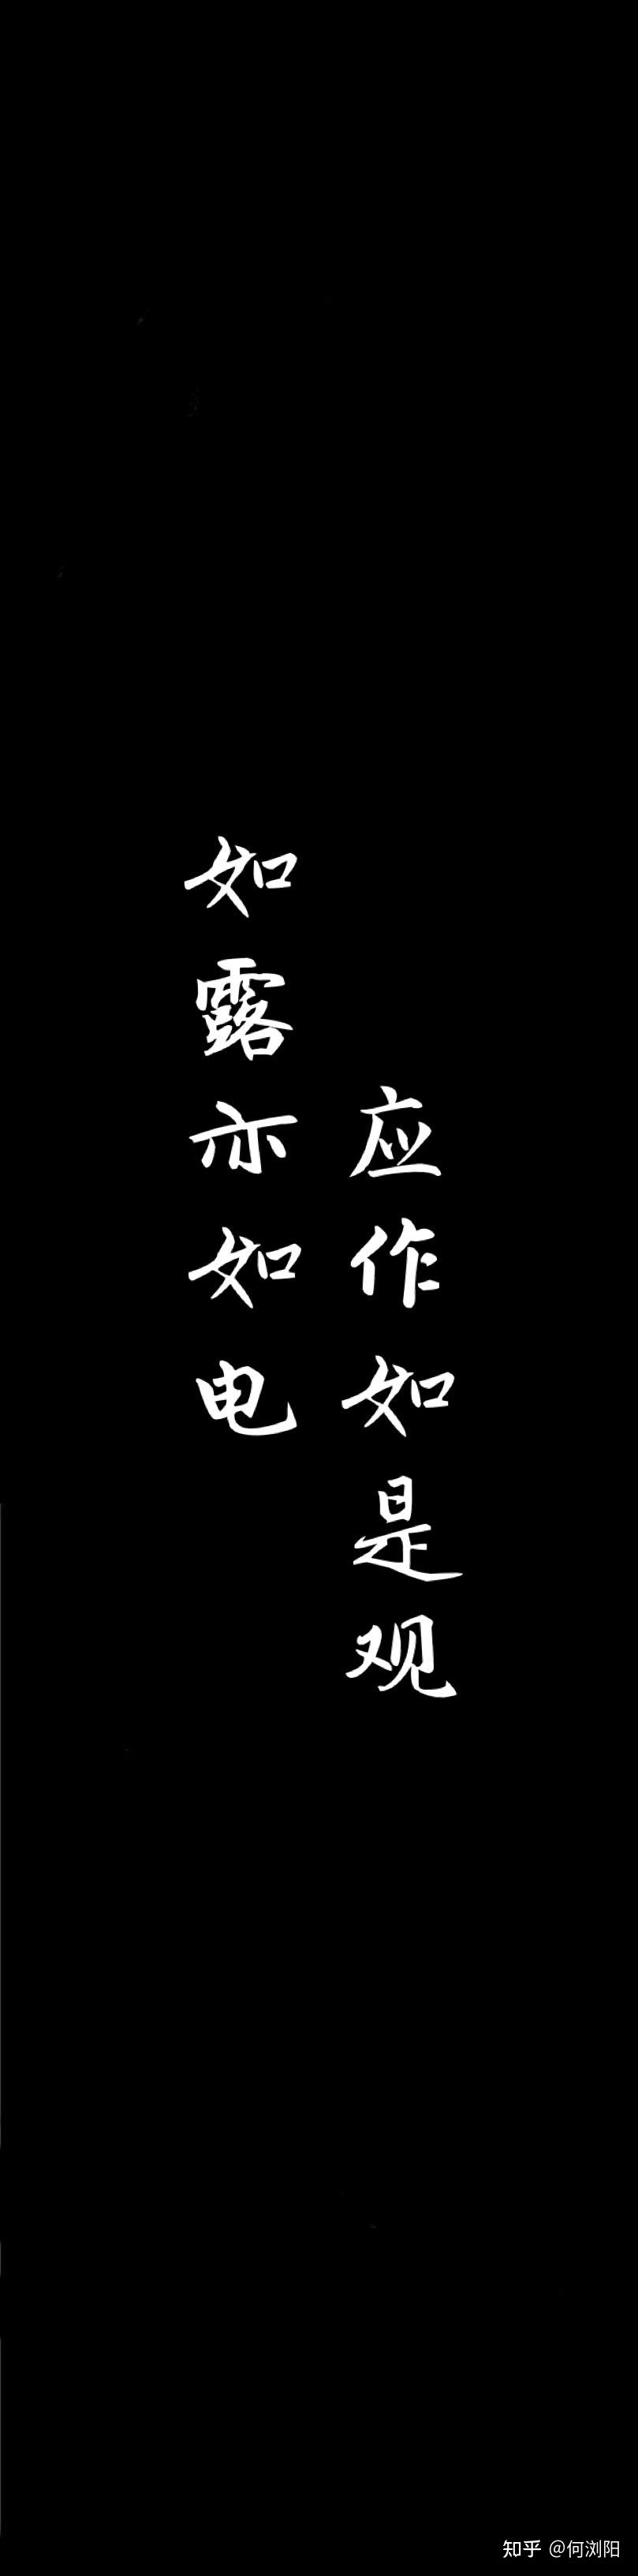 如露亦如电
应作如是观
知乎 @何浏阳